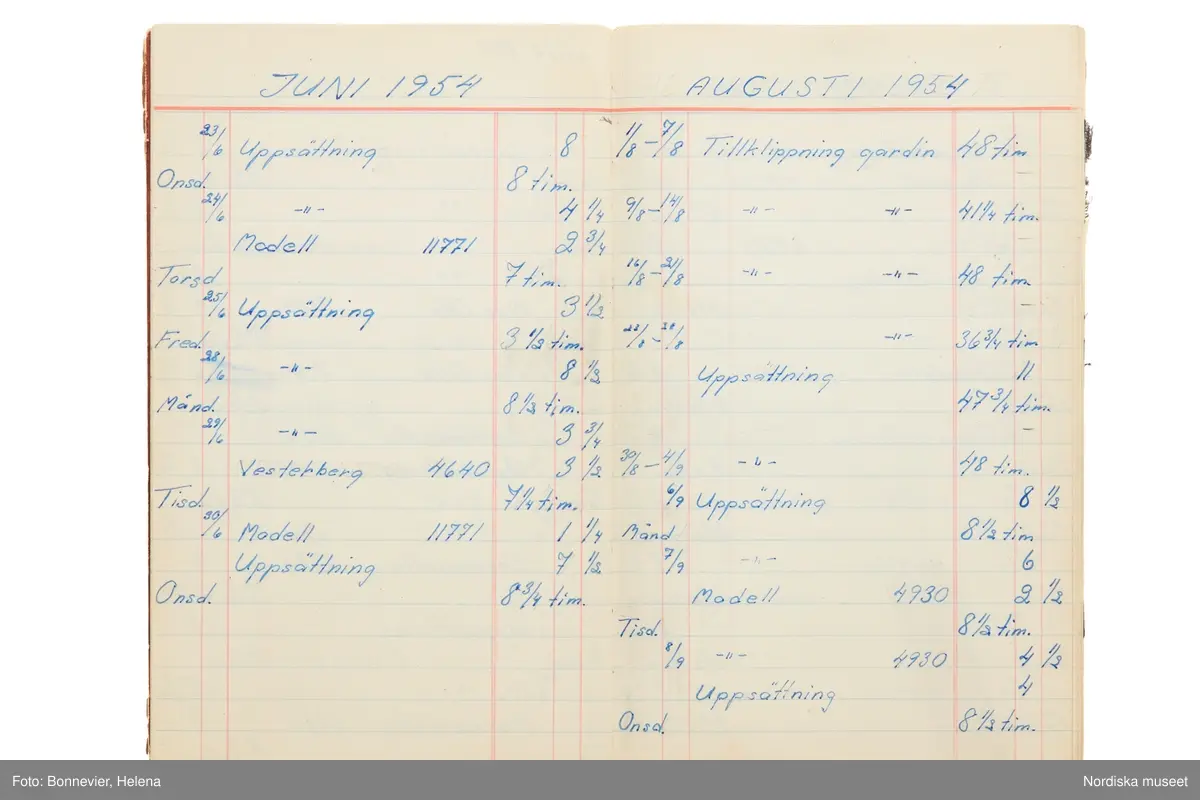 JUNI 1954
23/6 Uppsättning 8
Onsd. 8 tim.
24/6 -"- 4 1/4
Modell 11771 2 3/4
Torsd 7 tim.
25/6 Uppsättning 3 1/2
Fred. 3 1/2 tim.
28/6 -"- 8 1/2
Månd. 8 1/2 tim.
29/6 -"- 3 3/4
Vesterberg 4640 3 1/2
Tisd. 7 1/4 tim.
30/6 Modell 11771 1 1/4
Uppsättning 7 1/2
Onsd. 8 3/4 tim.
AUGUSTI 1954
1/8 - 7/8 Tillklippning gardin 48 tim
9/8 - 14/8 -"- -"- 41 1/4 tim.
16/8 - 21/8 -"- -"- 48 tim.
-"- 36 3/4 tim
Uppsättning 11
47 3/4 tim.
30/8 - 4/9 -"- 48 tim.
6/9 Uppsättning 8 1/2
Månd 8 1/2 tim
7/9 -"- 6
Modell 4930 2 1/2
Tisd. 8 1/2 tim.
8/9 -"- 4930 4 1/2
Uppsättning 4
Onsd. 8 1/2 tim.
Foto: Bonnevier, Helena
Nordiska museet